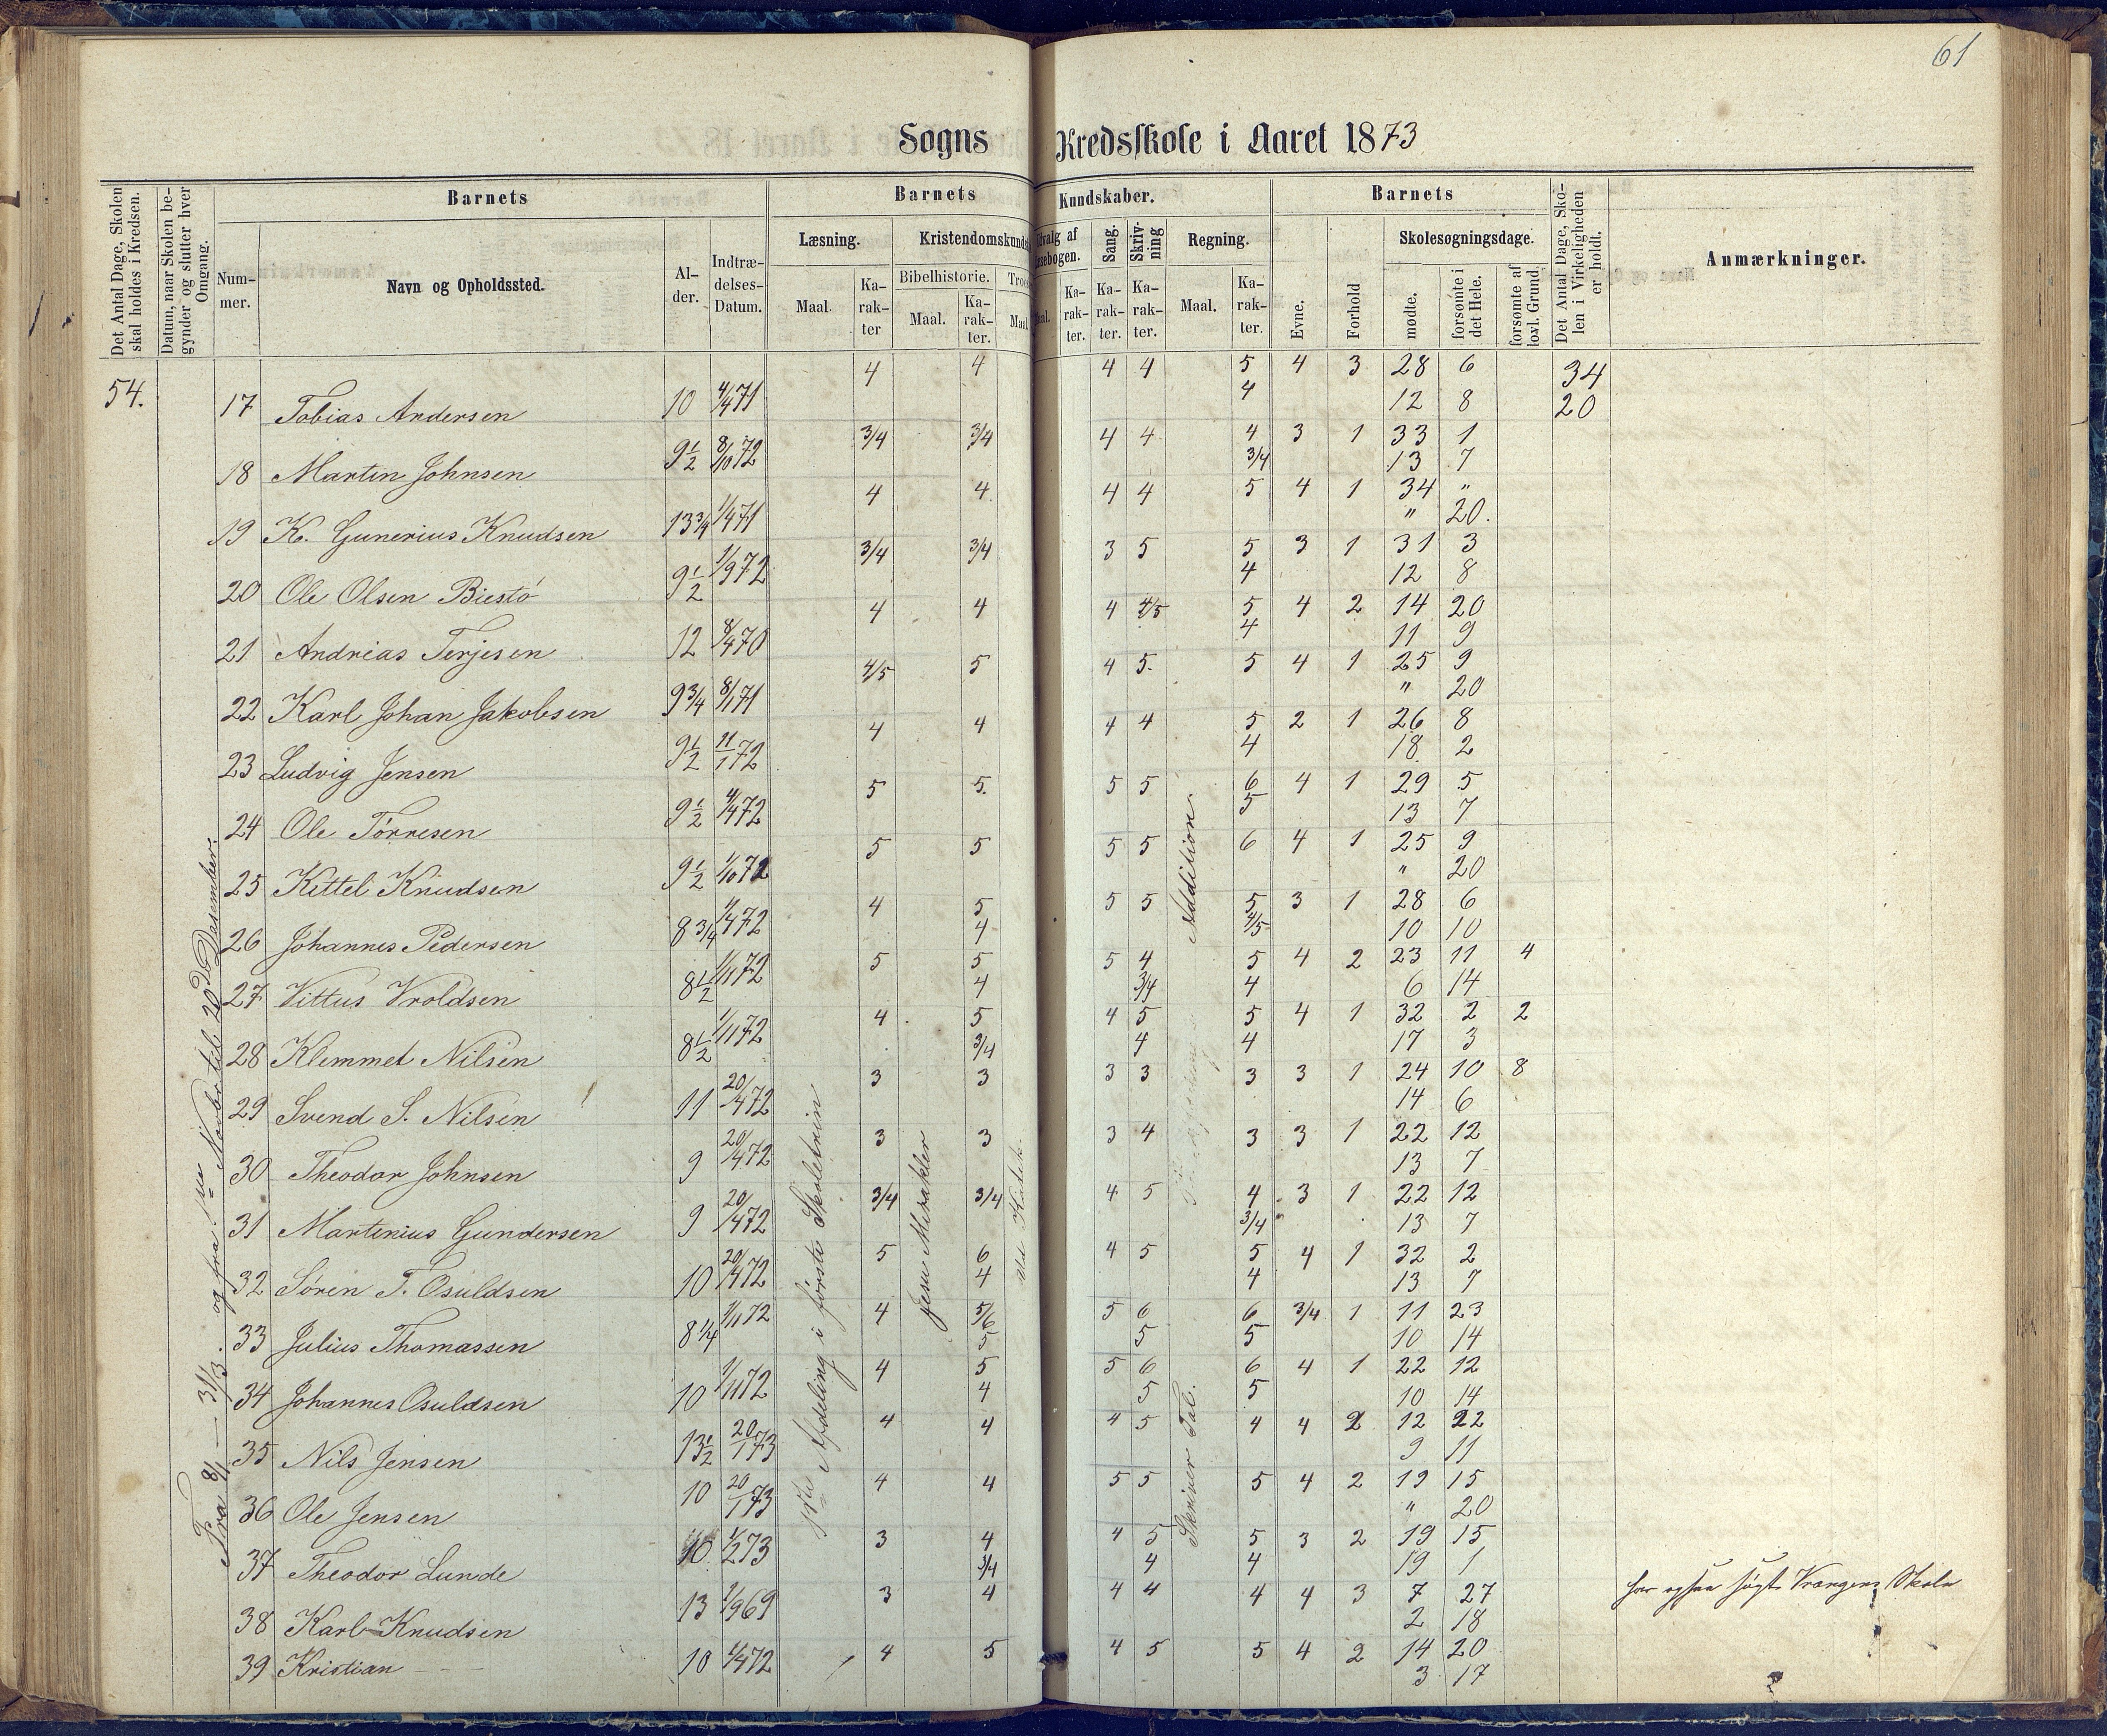 61
Sogns Kredsskole i Aaret 1873
Det Antal Dage, Skolen skal holdes i Kredsen.
Datum, naar Skolen begynder og slutter hver Omgang.
Barnets
Nummer.
Navn og Opholdssted.
Alder.
Indtrædelses-Datum.
Barnets Kundskaber.
Læsning.
Maal.
Karakter
Kristendomskunds
Bibelhistorie.
Maal.
Karakter.
Troes
Maal
dvalg af
sebogen.
Maal.
Karakter.
Sang.
Karakter.
Skrivning
Karakter.
Regning.
Maal.
Karakter.
Barnets
Evne.
Forhold
Skolesøgningsdage.
mødte.
forsømte i det Hele.
forsømte af lovl. Grund.
Det Antal Dage, Skolen i Virkeligheden er holdt.
Anmærkninger.
54.
Fra 8/1 — 31/3. og fra 1ste Novbr til 20de Desember.
1ste Afdeling i første Skoletrin
Jesu Mirakler
Ud. Katek.
Addition.
Skriver Tal.
17 Tobias Andersen 10 4/4 71 4 4 4 4 5 4 3 28 6 34
4 12 8 20
18 Martin Johnsen 9½ 8/10 72 3/4 3/4 4 4 4 3 1 33 1
3/4 13 7
19 K. Gunerius Knudsen 13¾ 1/4 71 4 4. 4 4 5 4 1 34 "
" 20.
20 Ole Olsen Biestö 9½ 1/9 72 3/4 3/4 3 5 5 3 1 31 3
4 12 8
21 Andrias Terjesen 12 8/4 70 4 4 4 4/5 5 4 2 14 20
4 11 9
22 Karl Johan Jakobsen 9¾ 8/1 71 4/5 5 4 5. 5 4 1 25 9
" 20
23 Ludvig Jensen 9½ 11/1 72 4 4 4 4 5 2 1 26 8
4 18 2
24 Ole Törresen 9½ 4/4 72 5 5. 5 5 6 4 1 29 5
5 13 7
25 Kittel Knudsen 9½ 1/10 72 5 5 5 5 6 4 1 25 9
" 20
26 Johannes Pedersen 8¾ 4/4 72 4 5 5 5 5 3 1 28 6
4 4/5 10 10
27 Vittus Vroldsen 8½ 1/11 72 5 5 5 4 5 4 2 23 11 4
4 3/4 4 6 14
28 Klemmet Nilsen 8½ 1/11 72 4 5 4 5 5 4 1 32 2 2
3/4 4 4 17 3
29 Svend S. Nilsen 11 20/4 72 3 3 3 3 3 3 1 24 10 8
14 6
30 Theodor Johnsen 9 20/4 72 3 3 3 4 3 3 1 22 12
13 7
31 Martinius Gundersen 9 20/4 72 3/4 3/4 4 5 4 3 1 22 12
3/4 13 7
32 Sören T. Osuldsen 10 20/4 72 5 6 4 5 5 4 1 32 2
4 4 13 7
33 Julius Thomassen 8¼ 1/11 72 4 5/6 5 6 6 3/4 1 11 23
5 5 5 10 14
34 Johannes Osuldsen 10 1/11 72 4 5 5 6 6 4 1 22 12
4 5 5 10 14
35 Nils Jensen 13½ 20/1 73 4 4 4 5 4 4 2 12 22
9 11
36 Ole Jensen 10 20/1 73 4 4 5 5 5 4 2 19 15
" 20
37 Theodor Lunde 10. 1/2 73 3 4 4 5 5 3 2 19 15
3/4 4 4 19 1
38 Karl Knudsen 13 1/9 69 3 4 4 4 4 4 3 7 27 har ogsaa søgt Vrengens Skole
2 18
39 Kristian — — 10 4/4 72 4 5 4 5 5 4 2 14 20
3 17